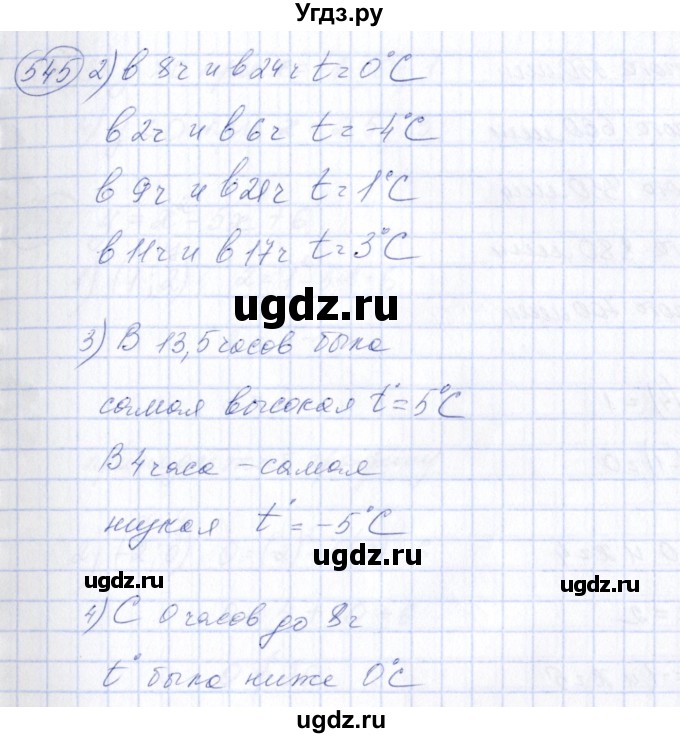 Угдз.ру
545 2) в 8ч и в 24ч t = 0°С
в 2ч и в 6ч t = -4°С
в 9ч и в 21ч t = 1°С
в 11ч и в 17ч t = 3°С
ugdz.ru ugdz.ru
3) В 13,5 часов была
самая высокая t° = 5°С
В 4 часа - самая
низкая t° = -5°С
ugdz.ru
ugdz.ru ugdz.ru
4) С 0 часов до 8ч
t° была ниже 0°С
ugdz.ru